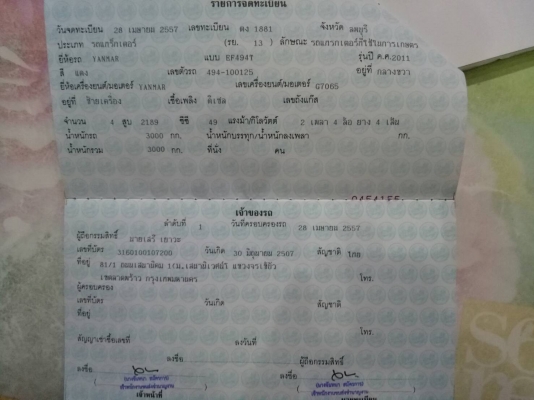 รายการจดทะเบียน
วันจดทะเบียน 28 เมษายน 2557 เลขทะเบียน ตง 1881 จังหวัด ลพบุรี
ประเภท รถแทรกเตอร์ (รย. 13 ) ลักษณะ รถแทรกเตอร์ที่ใช้ในการเกษตร
ยี่ห้อรถ YANMAR แบบ EF494T รุ่นปี ค.ศ. 2011
สี แดง เลขตัวรถ 494-100125 อยู่ที่ กลางขวา
ยี่ห้อเครื่องยนต์/มอเตอร์ YANMAR เลขเครื่องยนต์/มอเตอร์ G7065
อยู่ที่ ซ้ายเครื่อง เชื้อเพลิง ดีเซล เลขถังแก๊ส
จำนวน 4 สูบ 2189 ซีซี 49 แรงม้า/กิโลวัตต์ 2 เพลา 4 ล้อ ยาง 4 เส้น
น้ำหนักรถ 3000 กก. น้ำหนักบรรทุก/น้ำหนักลงเพลา กก.
น้ำหนักรวม 3000 กก. ที่นั่ง คน
เจ้าของรถ
ลำดับที่ 1 วันที่ครอบครองรถ 28 เมษายน 2557
ผู้ถือกรรมสิทธิ์
เลขที่บัตร 3160100107200 วันเกิด 30 มิถุนายน 2507 สัญชาติ ไทย
ที่อยู่ 81/1
เขตลาดพร้าว กรุงเทพมหานคร โทร.
ผู้ครอบครอง
เลขที่บัตร วันเกิด สัญชาติ
ที่อยู่
โทร.
สัญญาเช่าซื้อเลขที่ ลงวันที่
ลงชื่อ ผู้ถือกรรมสิทธิ์
ลงชื่อ ลงชื่อ
เจ้าหน้าที่ นายทะเบียน